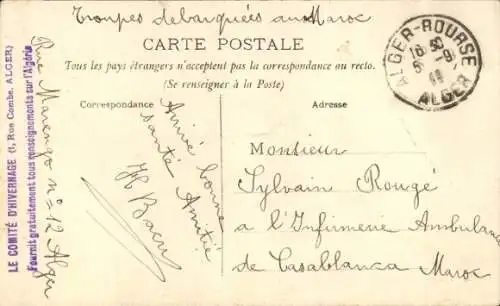 Troupes debarquées au Maroc
CARTE POSTALE
Tous les pays étrangers n'acceptent pas la correspondance au recto.
(Se renseigner à la Poste)
Correspondance
Adresse
ALGER-BOURSE
ALGER
LE COMITÉ D'HIVERNAGE (1, Rue Combe, ALGER)
Fournit gratuitement tous renseignements sur l'Algérie
Rue Marengo n° 12 Alger
Arrivé bonne
santé Amitié
Monsieur
Sylvain Rougé
a l'Infirmerie Ambulance
de Casablanca Maroc